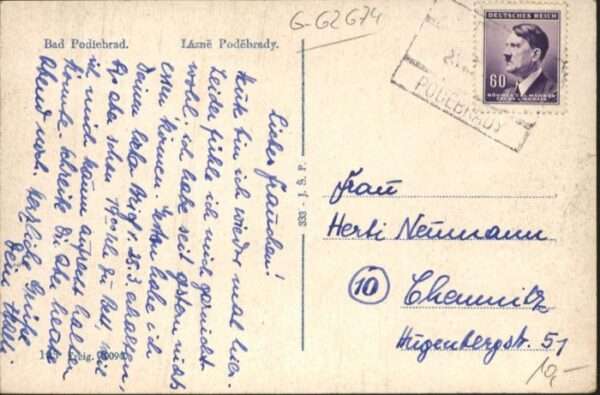 G-G2G74
Bad Podiebrad. Lázně Poděbrady.
Liebes Frauchen!
Heute bin ich wieder mal hier.
Leider fühle ich mich garnicht
wohl, ich habe seit gestern nichts
essen können. Gestern habe ich
Deinen lieben Brief v. 25.3 erhalten,
aber schon zu Bett, weil
ich mich kaum aufrecht halten
konnte. Schreibe Dir aber heute
Abend noch. Herzliche Grüße
Dein Hans.
333 - J. Š. P.
DEUTSCHES REICH
60
BÖHMEN UND MÄHREN
ČECHY A MORAVA
PODĚBRADY
Frau
Herti Neumann
10 Chemnitz
Hugenbergstr. 51
10,-